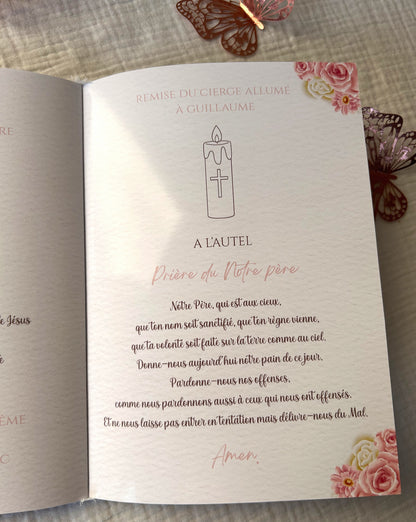 RE
e Jésus
e
ÊME
C
REMISE DU CIERGE ALLUMÉ
A GUILLAUME
A L'AUTEL
Prière du Notre père
Notre Père, qui est aux cieux,
que ton nom soit sanctifié, que ton règne vienne,
que ta volonté soit faite sur la terre comme au ciel.
Donne-nous aujourd'hui notre pain de ce jour,
Pardonne-nous nos offenses,
comme nous pardonnons aussi à ceux qui nous ont offensés.
Et ne nous laisse pas entrer en tentation mais délivre-nous du Mal.
Amen.